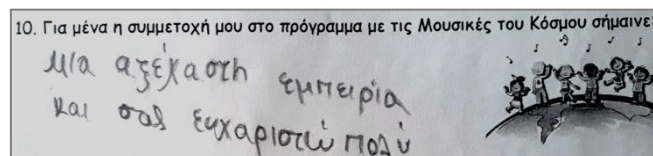 10. Για μένα η συμμετοχή μου στο πρόγραμμα με τις Μουσικές του Κόσμου σήμαινε:
μία αξέχαστη εμπειρία
και σας ευχαριστώ πολύ